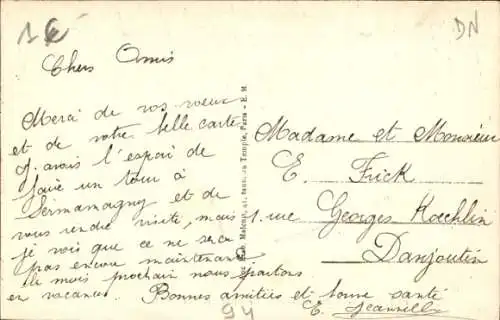 1€
DN
Chers Amis
Merci de vos voeux
et de votre belle carte
J'avais l'espoir de
faire un tour à
Sermamagny et de
vous rendre visite, mais
je vois que ce ne sera
pas encore maintenant
le mois prochain nous partons
en vacances. Bonnes amitiés et bonne santé
E.
Temple, Paris - E. M
Madame et Monsieur
E. Frick
1, rue Georges Koechlin
Danjoutin
94